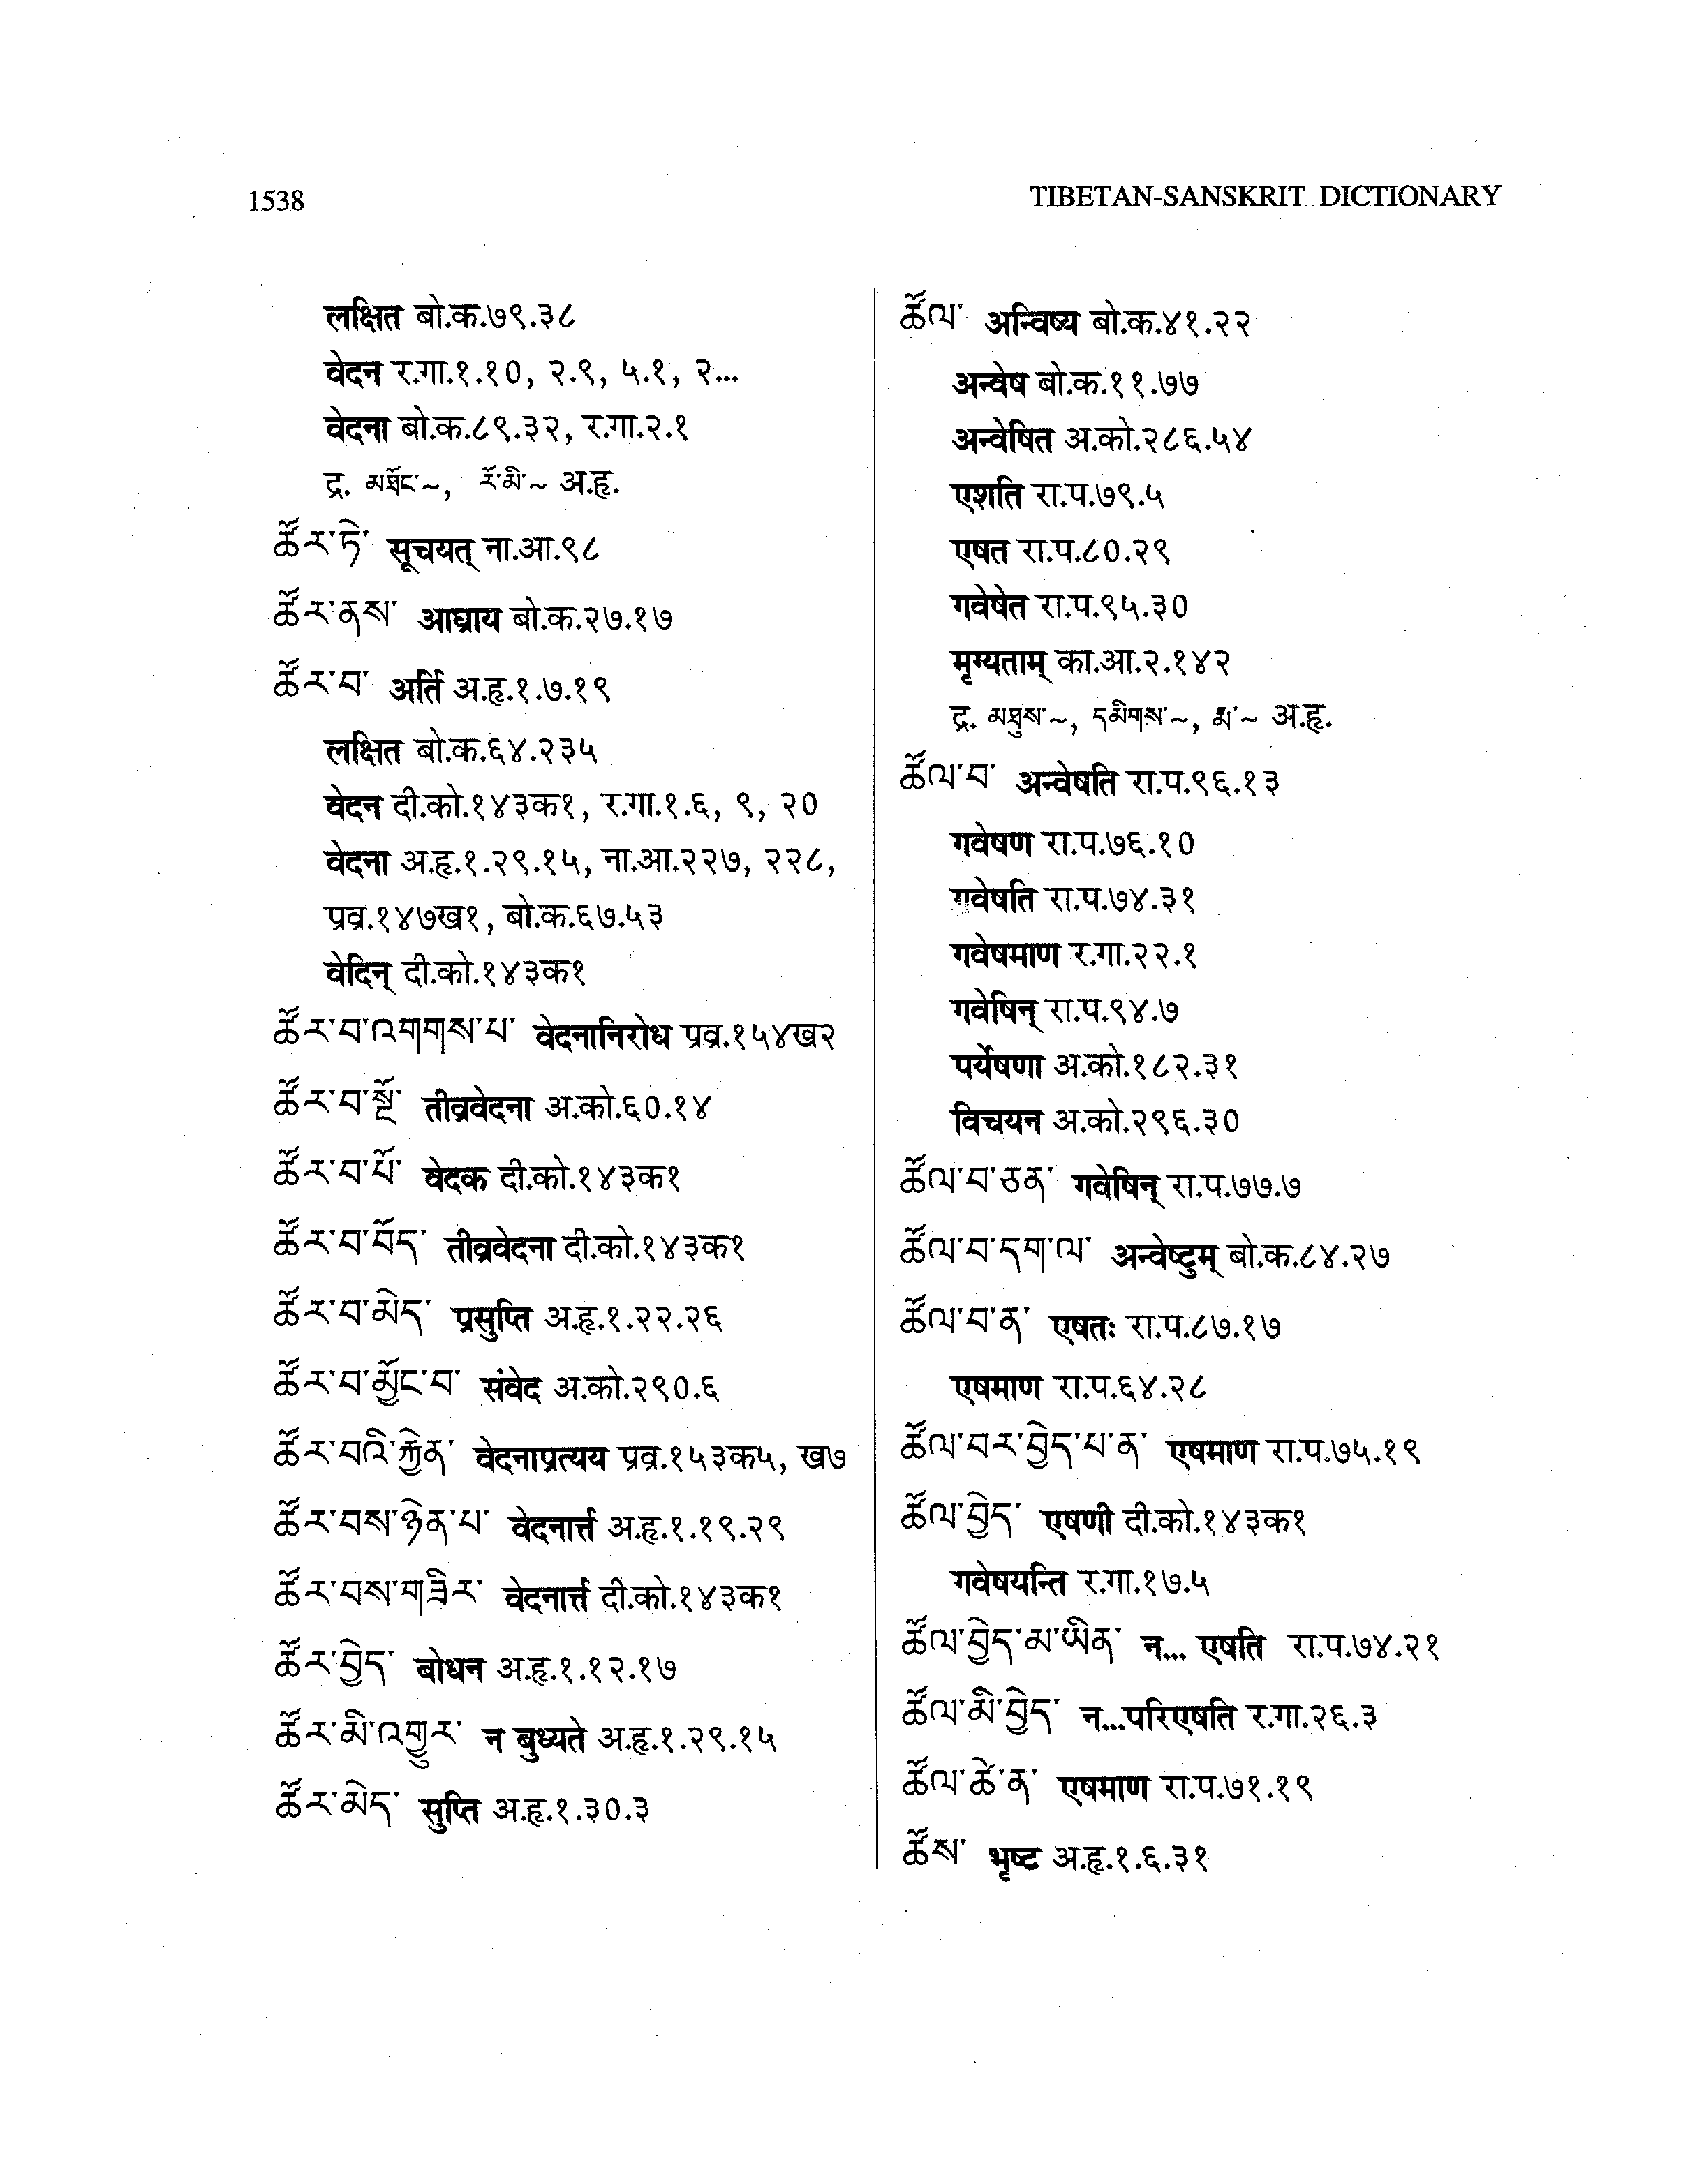 1538
TIBETAN-SANSKRIT DICTIONARY
लक्षित बो.क.७९.३८
वेदन र.गा.१.१०, २.९, ५.१, २...
वेदना बो.क.८९.३२, र.गा.२.१
द्र. མཐོང་~, རོ་མི་~ अ.हृ.
ཚོར་ཏེ་ सूचयत् ना.आ.९८
ཚོར་ནས་ आघ्राय बो.क.२७.१७
ཚོར་བ་ अर्ति अ.हृ.१.७.१९
लक्षित बो.क.६४.२३५
वेदन दी.को.१४३क१, र.गा.१.६, ९, २०
वेदना अ.हृ.१.२९.१५, ना.आ.२२७, २२८,
प्रव्र.१४७ख१, बो.क.६७.५३
वेदिन् दी.को.१४३क१
ཚོར་བ་འགགས་པ་ वेदनानिरोध प्रव्र.१५४ख२
ཚོར་བ་སྔོ་ तीव्रवेदना अ.को.६०.१४
ཚོར་བ་པོ་ वेदक दी.को.१४३क१
ཚོར་བ་བོད་ तीव्रवेदना दी.को.१४३क१
ཚོར་བ་མེད་ प्रसुप्ति अ.हृ.१.२२.२६
ཚོར་བ་མྱོང་བ་ संवेद अ.को.२९०.६
ཚོར་བའི་རྐྱེན་ वेदनाप्रत्यय प्रव्र.१५३क५, ख७
ཚོར་བས་ཉེན་པ་ वेदनार्त्त अ.हृ.१.१९.२९
ཚོར་བས་གཟིར་ वेदनार्त्त दी.को.१४३क१
ཚོར་བྱེད་ बोधन अ.हृ.१.१२.१७
ཚོར་མི་འགྱུར་ न बुध्यते अ.हृ.१.२९.१५
ཚོར་མེད་ सुप्ति अ.हृ.१.३०.३
ཚོལ་ अन्विष्य बो.क.४१.२२
अन्वेष बो.क.११.७७
अन्वेषित अ.को.२८६.५४
एशति रा.प.७९.५
एषत रा.प.८०.२९
गवेषेत रा.प.९५.३०
मृग्यताम् का.आ.२.१४२
द्र. མཐུས་~, དམིགས་~, རྨ་~ अ.हृ.
ཚོལ་བ་ अन्वेषति रा.प.९६.१३
गवेषण रा.प.७६.१०
गवेषति रा.प.७४.३१
गवेषमाण र.गा.२२.१
गवेषिन् रा.प.९४.७
पर्येषणा अ.को.१८२.३१
विचयन अ.को.२९६.३०
ཚོལ་བ་ཅན་ गवेषिन् रा.प.७७.७
ཚོལ་བ་དག་ལ་ अन्वेष्टुम् बो.क.८४.२७
ཚོལ་བ་ན་ एषतः रा.प.८७.१७
एषमाण रा.प.६४.२८
ཚོལ་བར་བྱེད་པ་ན་ एषमाण रा.प.७५.१९
ཚོལ་བྱེད་ एषणी दी.को.१४३क१
गवेषयन्ति र.गा.१७.५
ཚོལ་བྱེད་མ་ཡིན་ न... एषति रा.प.७४.२१
ཚོལ་མི་བྱེད་ न...परिएषति र.गा.२६.३
ཚོལ་ཚེ་ན་ एषमाण रा.प.७१.१९
ཚོས་ भृष्ट अ.हृ.१.६.३१